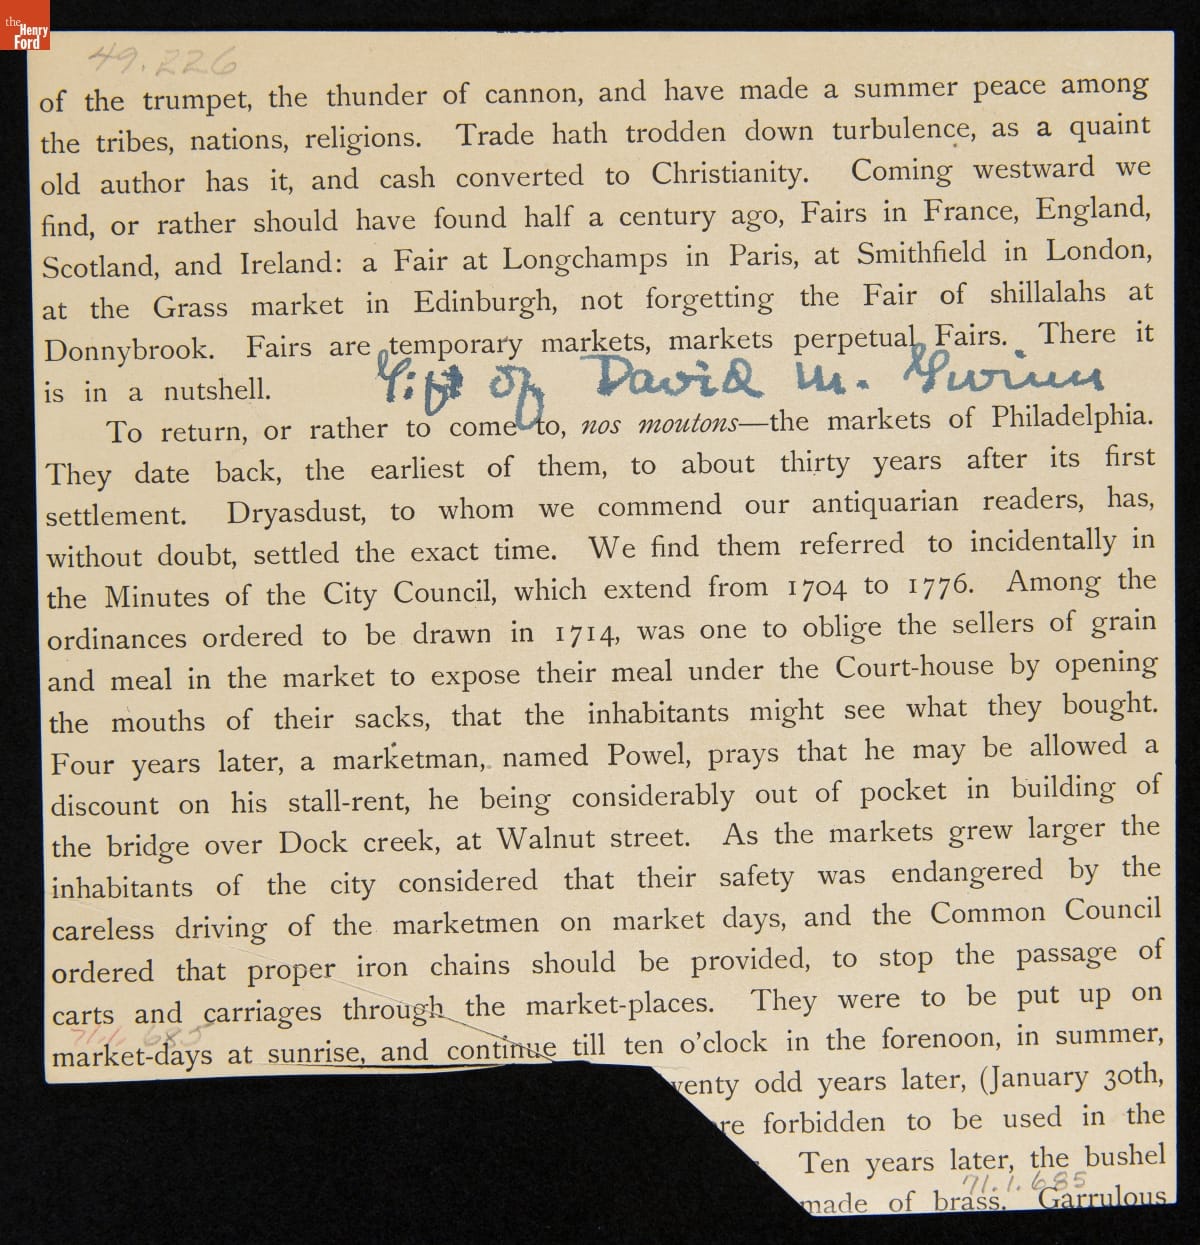 the
Henry
Ford
49.226
of the trumpet, the thunder of cannon, and have made a summer peace among
the tribes, nations, religions. Trade hath trodden down turbulence, as a quaint
old author has it, and cash converted to Christianity. Coming westward we
find, or rather should have found half a century ago, Fairs in France, England,
Scotland, and Ireland: a Fair at Longchamps in Paris, at Smithfield in London,
at the Grass market in Edinburgh, not forgetting the Fair of shillalahs at
Donnybrook. Fairs are temporary markets, markets perpetual Fairs. There it
is in a nutshell.
Gift of David M. Gwinn
To return, or rather to come to, nos moutons—the markets of Philadelphia.
They date back, the earliest of them, to about thirty years after its first
settlement. Dryasdust, to whom we commend our antiquarian readers, has,
without doubt, settled the exact time. We find them referred to incidentally in
the Minutes of the City Council, which extend from 1704 to 1776. Among the
ordinances ordered to be drawn in 1714, was one to oblige the sellers of grain
and meal in the market to expose their meal under the Court-house by opening
the mouths of their sacks, that the inhabitants might see what they bought.
Four years later, a marketman, named Powel, prays that he may be allowed a
discount on his stall-rent, he being considerably out of pocket in building of
the bridge over Dock creek, at Walnut street. As the markets grew larger the
inhabitants of the city considered that their safety was endangered by the
careless driving of the marketmen on market days, and the Common Council
ordered that proper iron chains should be provided, to stop the passage of
carts and carriages through the market-places. They were to be put up on
71.1.685
market-days at sunrise, and continue till ten o'clock in the forenoon, in summer,
wenty odd years later, (January 30th,
re forbidden to be used in the
Ten years later, the bushel
71.1.685
made of brass. Garrulous